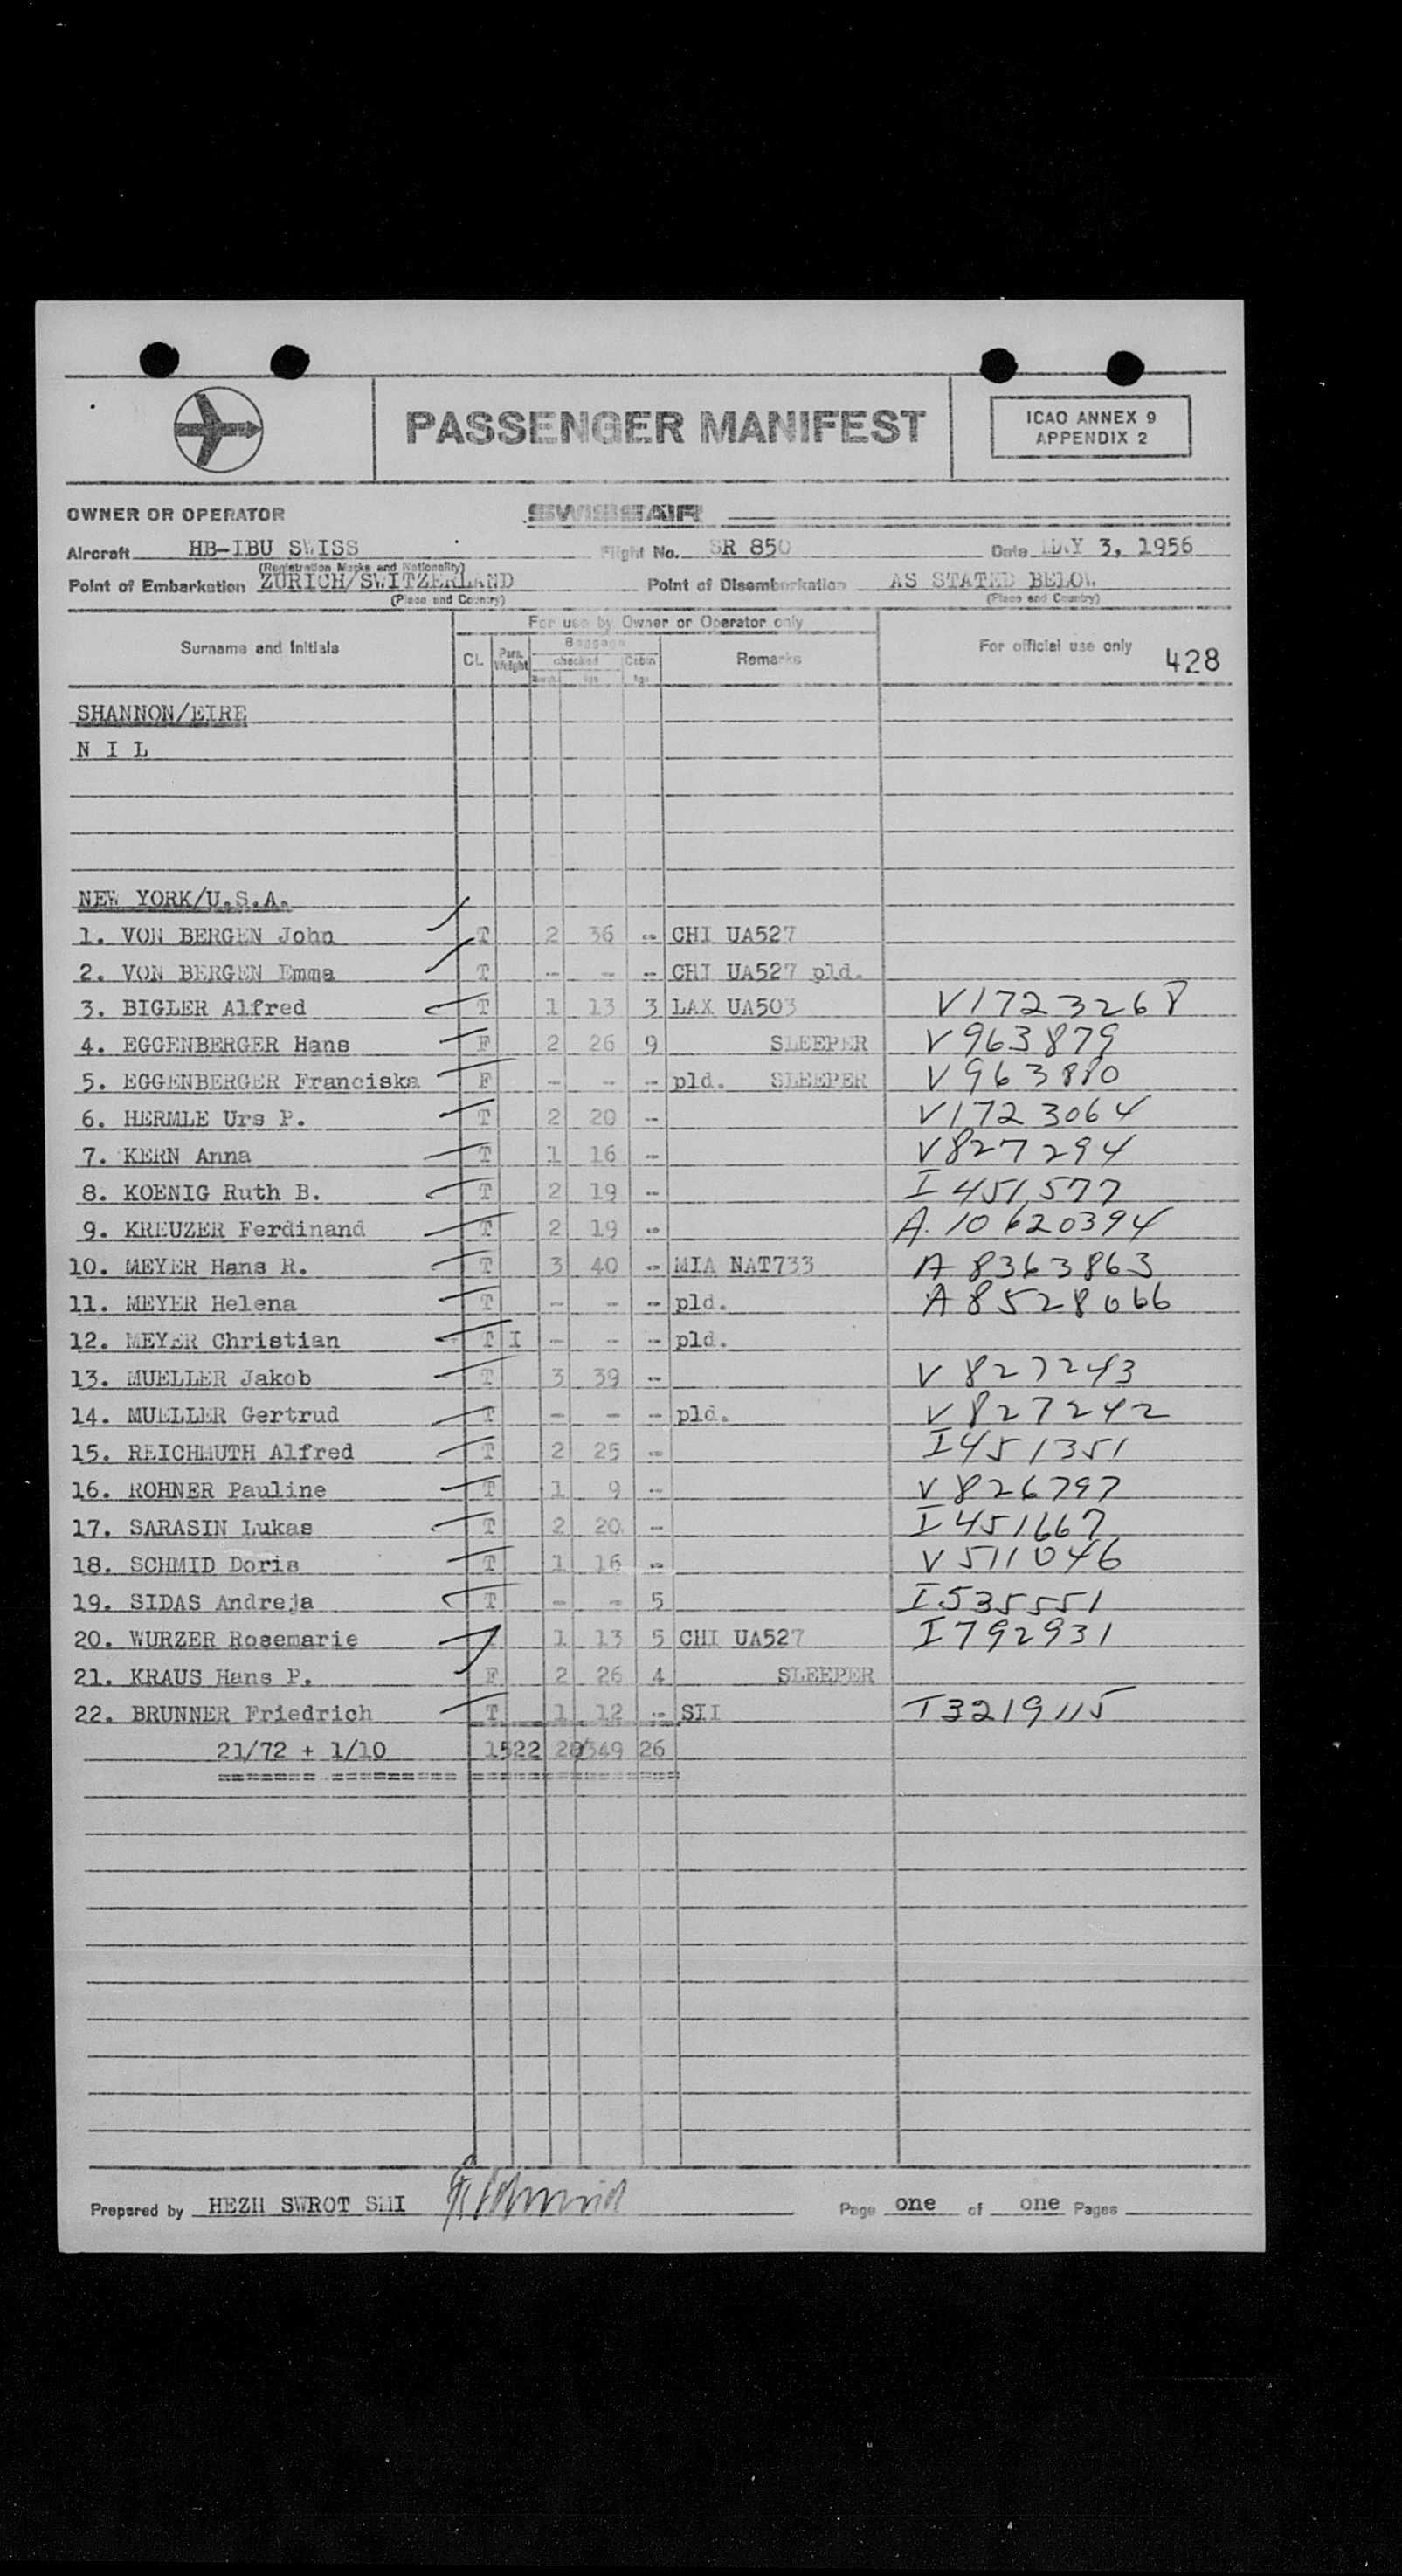 PASSENGER MANIFEST
ICAO ANNEX 9
APPENDIX 2
OWNER OR OPERATOR SWISSAIR
Aircraft HB-IBU SWISS Flight No. SR 850 Date MAY 3, 1956
(Registration Marks and Nationality)
Point of Embarkation ZURICH/SWITZERLAND Point of Disembarkation AS STATED BELOW
(Place and Country) (Place and Country)
For use by Owner or Operator only
Surname and Initials CL. Pass. Weight Baggage checked Cabin Remarks For official use only 428
kgs kgs
SHANNON/EIRE
N I L
NEW YORK/U.S.A.
1. VON BERGEN John T 2 36 -- CHI UA527
2. VON BERGEN Emma T -- - -- CHI UA527 pld.
3. BIGLER Alfred T 1 13 3 LAX UA503 V1723268
4. EGGENBERGER Hans F 2 26 9 SLEEPER V963879
5. EGGENBERGER Franciska F - - -- pld. SLEEPER V963880
6. HERMLE Urs P. T 2 20 -- V1723064
7. KERN Anna T 1 16 -- V827294
8. KOENIG Ruth B. T 2 19 -- I451577
9. KREUZER Ferdinand T 2 19 -- A.10620394
10. MEYER Hans R. T 3 40 -- MIA NAT733 A8363863
11. MEYER Helena T - - -- pld. A8528066
12. MEYER Christian T I -- -- -- pld.
13. MUELLER Jakob T 3 39 -- V827243
14. MUELLER Gertrud T -- - -- pld. V827242
15. REICHMUTH Alfred T 2 25 -- I451351
16. ROHNER Pauline T 1 9 -- V826797
17. SARASIN Lukas T 2 20 -- I451667
18. SCHMID Doris T 1 16 -- V511046
19. SIDAS Andreja T -- - 5 I535551
20. WURZER Rosemarie 1 13 5 CHI UA527 I792931
21. KRAUS Hans P. F 2 26 4 SLEEPER
22. BRUNNER Friedrich T 1 12 -- SII T3219115
21/72 + 1/10 1522 349 26
======= ========= ===============
Prepared by HEZH SWROT SMI Page one of one Pages